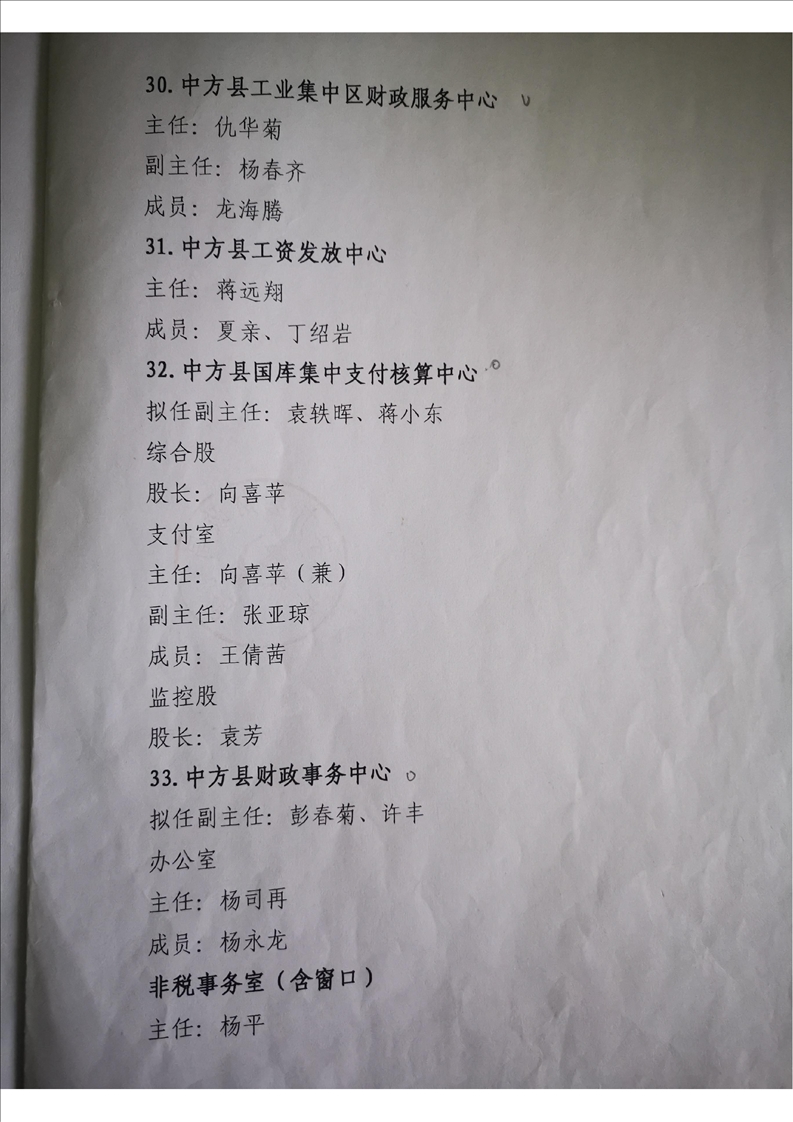 30.中方县工业集中区财政服务中心
主任：仇华菊
副主任：杨春齐
成员：龙海腾
31.中方县工资发放中心
主任：蒋远翔
成员：夏亲、丁绍岩
32.中方县国库集中支付核算中心
拟任副主任：袁轶晖、蒋小东
综合股
股长：向喜苹
支付室
主任：向喜苹（兼）
副主任：张亚琼
成员：王倩茜
监控股
股长：袁芳
33.中方县财政事务中心
拟任副主任：彭春菊、许丰
办公室
主任：杨司再
成员：杨永龙
非税事务室（含窗口）
主任：杨平